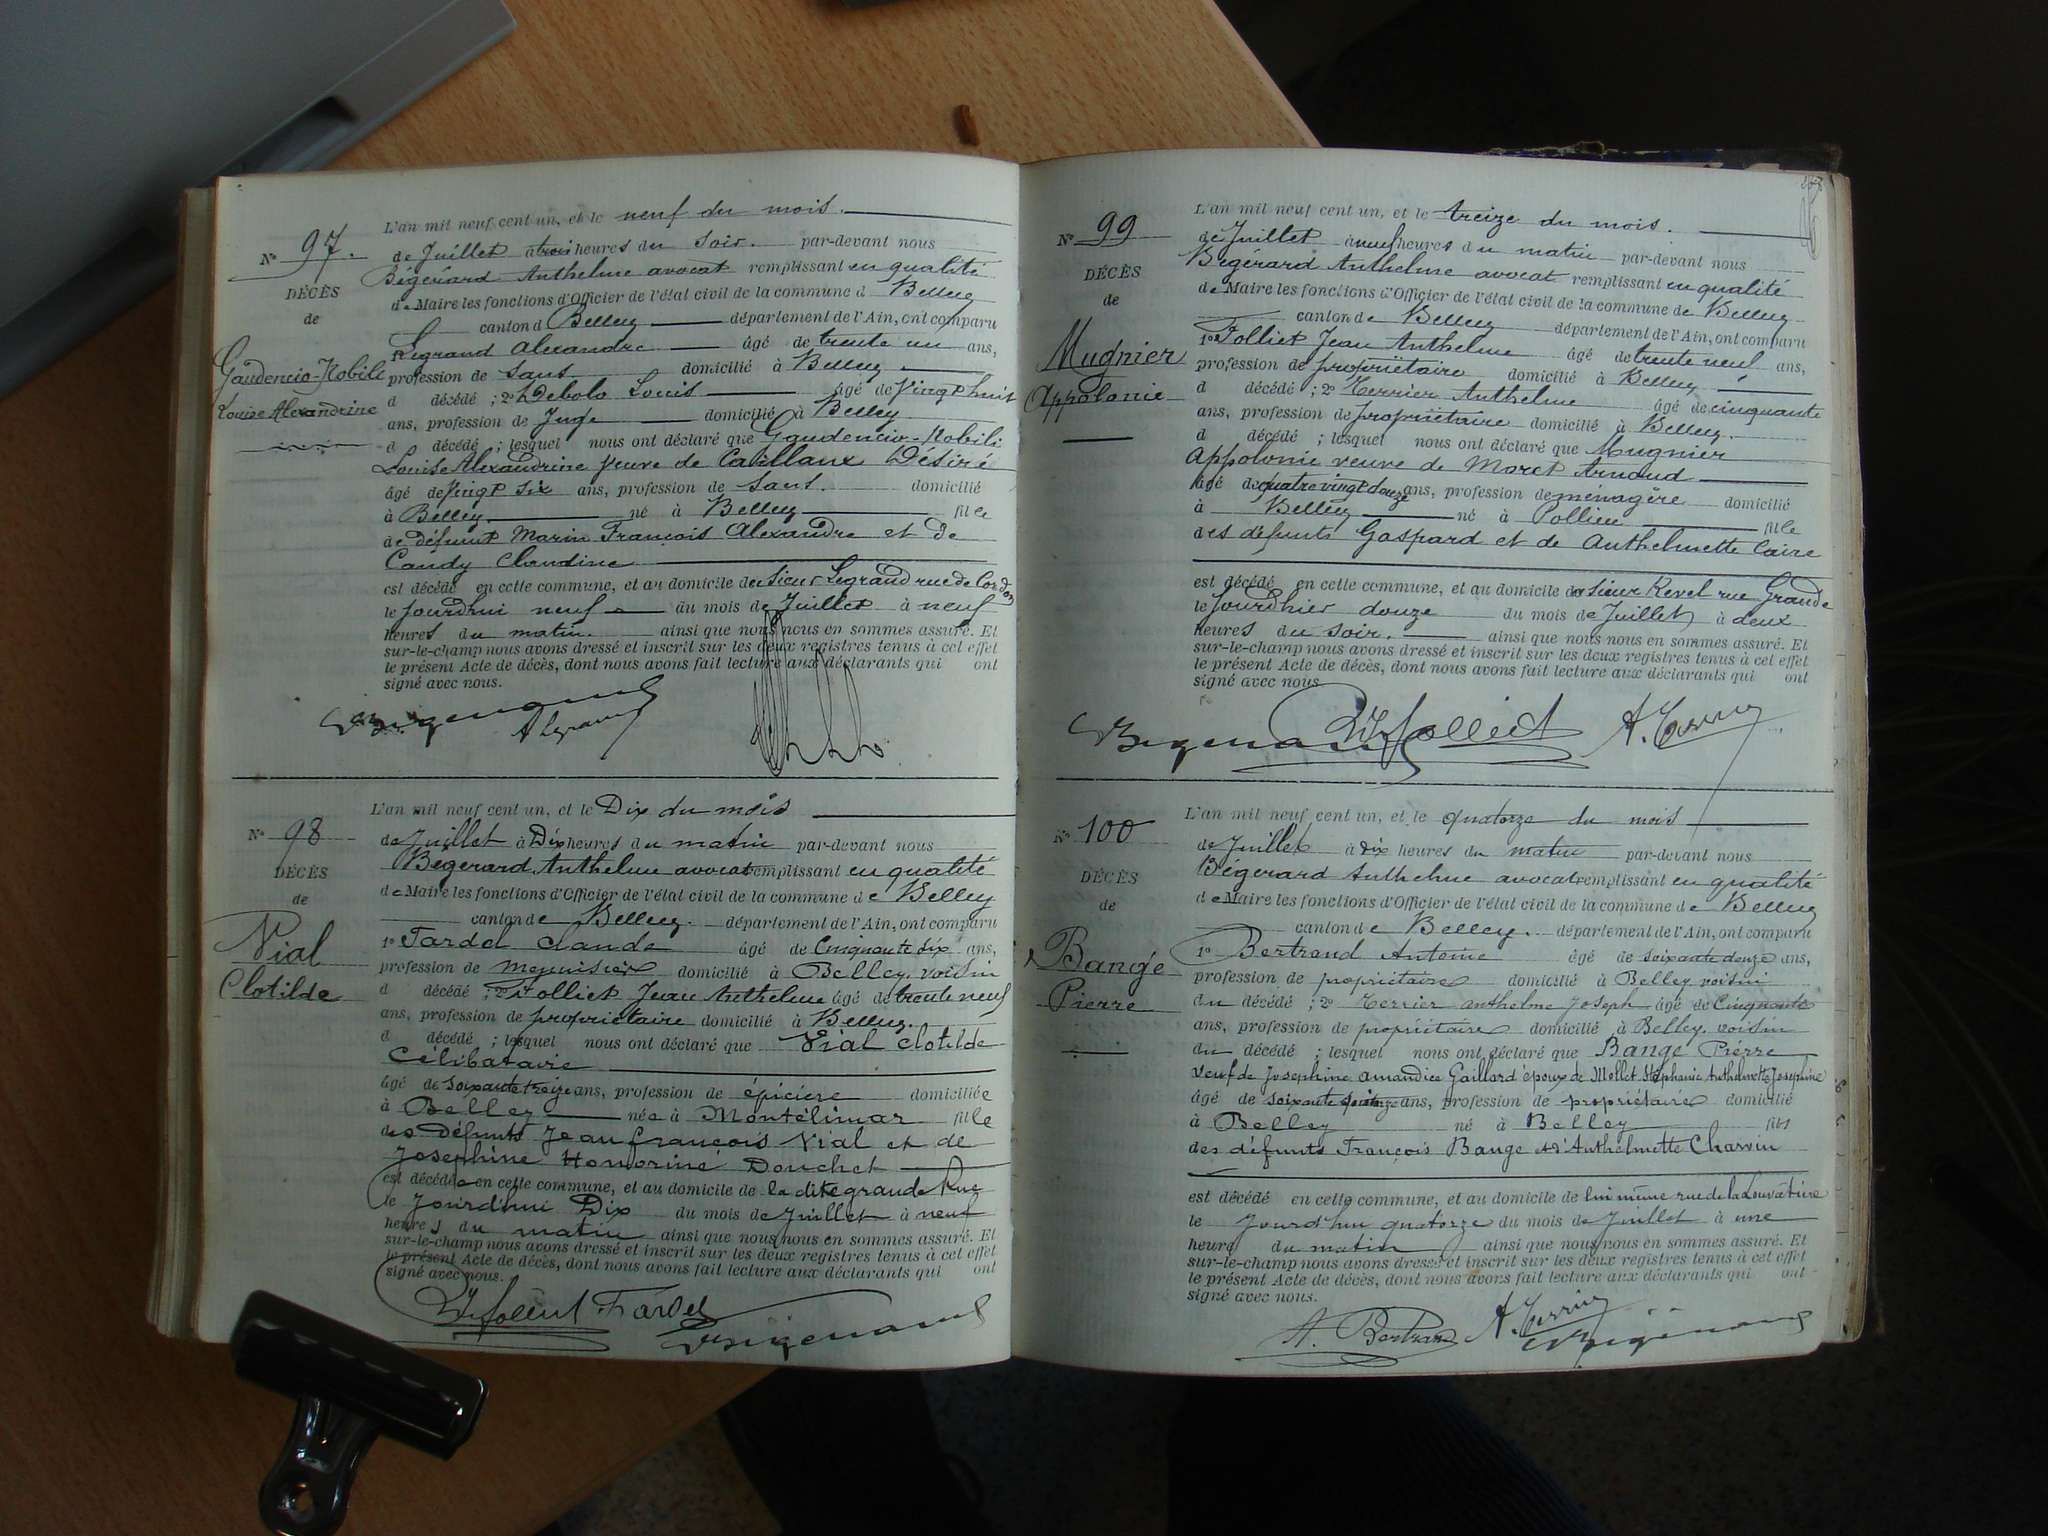 L'an mil neuf cent un, et le neuf du mois.
No 97. de Juillet à trois heures du soir. par-devant nous
Bégérard Anthelme avocat remplissant en qualité
DÉCÈS
de Maire les fonctions d'Officier de l'état civil de la commune d Belley
de
canton d Belley département de l'Ain, ont comparu
Legrand Alexandre âgé de trente un ans,
Gaudencio-Nobili
profession de sans domicilié à Belley
Louise Alexandrine
d décédé ; 2o Debolo Louis âgé de vingt huit
ans, profession de Juge domicilié à Belley
d décédé ; lesquel nous ont déclaré que Gaudencio-Nobili
Louise Alexandrine veuve de Caillaux Désiré
âgé de vingt six ans, profession de sans. domicilié
à Belley né à Belley fille
de défunt Marin François Alexandre et de
Candy Claudine
est décédé en cette commune, et au domicile du sieur Legrand rue de Cordon
le jourdhui neuf du mois de Juillet à neuf
heures du matin. ainsi que nous nous en sommes assuré. Et
sur-le-champ nous avons dressé et inscrit sur les deux registres tenus à cet effet
le présent Acte de décès, dont nous avons fait lecture aux déclarants qui ont
signé avec nous.
A Legrand
L'an mil neuf cent un, et le Dix du mois
No 98 de Juillet à Dix heures du matin par-devant nous
Bégerard Anthelme avocat remplissant en qualité
DÉCÈS
de Maire les fonctions d'Officier de l'état civil de la commune de Belley
de
canton de Belley. département de l'Ain, ont comparu
Vial
1o Tardel Claude âgé de Cinquante six ans,
profession de menuisier domicilié à Belley. voisin
Clotilde
d décédé ; 2o Folliet Jean Anthelme âgé de trente neuf
ans, profession de propriétaire domicilié à Belley.
d décédé ; lesquel nous ont déclaré que Vial Clotilde
Célibataire
âgé de soixante treize ans, profession de épicière domiciliée
à Belley née à Montélimar fille
des défunts Jean François Vial et de
Josephine Honorine Douchet
est décédée en cette commune, et au domicile de la dite grande Rue
le jourd'hui Dix du mois de Juillet à neuf
heures du matin ainsi que nous nous en sommes assuré. Et
sur-le-champ nous avons dressé et inscrit sur les deux registres tenus à cet effet
le présent Acte de décès, dont nous avons fait lecture aux déclarants qui ont
signé avec nous.
Folliet Tardel
L'an mil neuf cent un, et le treize du mois.
No 99 de Juillet à neuf heures du matin par-devant nous
Bégérard Anthelme avocat remplissant en qualité
DÉCÈS
de Maire les fonctions d'Officier de l'état civil de la commune de Belley
de
canton de Belley département de l'Ain, ont comparu
Mugnier
1o Folliet Jean Anthelme âgé de trente neuf ans,
profession de propriétaire domicilié à Belley
Appolonie
d décédé ; 2o Terrier Anthelme âgé de cinquante
ans, profession de propriétaire domicilié à Belley.
d décédé ; lesquel nous ont déclaré que Mugnier
Appolonie veuve de Moret Arnaud
âgé de quatre vingt douze ans, profession de ménagère domicilié
à Belley né à Pollieu fille
des défunts Gaspard et de Anthelmette Caire
est décédé en cette commune, et au domicile du sieur Revel rue Grande
le jourdhier douze du mois de Juillet à deux
heures du soir. ainsi que nous nous en sommes assuré. Et
sur-le-champ nous avons dressé et inscrit sur les deux registres tenus à cet effet
le présent Acte de décès, dont nous avons fait lecture aux déclarants qui ont
signé avec nous
Folliet
L'an mil neuf cent un, et le quatorze du mois
No 100 de Juillet à dix heures du matin par-devant nous
Bégerard Anthelme avocat remplissant en qualité
DÉCÈS
de Maire les fonctions d'Officier de l'état civil de la commune de Belley
de
canton de Belley. département de l'Ain, ont comparu
Bangé
1o Bertrand Antoine âgé de soixante douze ans,
profession de propriétaire domicilié à Belley voisin
Pierre
du décédé ; 2o Terrier Anthelme Joseph âgé de Cinquante
ans, profession de propriétaire domicilié à Belley. voisin
du décédé ; lesquel nous ont déclaré que Bangé Pierre
veuf de Josephine amandice Gaillard époux de Mollet Stéphanie Anthelmette Josephine
âgé de soixante quatorze ans, profession de propriétaire domicilié
à Belley né à Belley fils
des défunts François Bange et d'Anthelmette Charvin
est décédé en cette commune, et au domicile de lui même rue de la Louvatière
le jourd'hui quatorze du mois de Juillet à une
heure du matin ainsi que nous nous en sommes assuré. Et
sur-le-champ nous avons dressé et inscrit sur les deux registres tenus à cet effet
le présent Acte de décès, dont nous avons fait lecture aux déclarants qui ont
signé avec nous.
A. Bertran